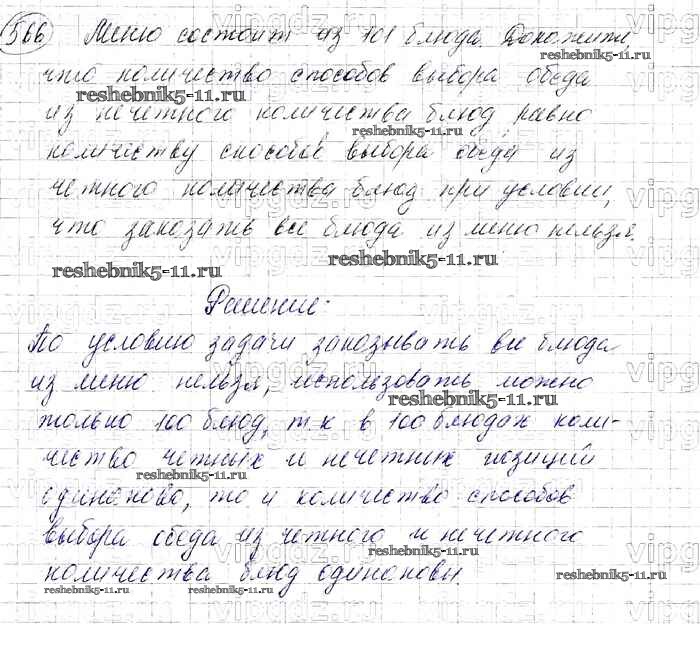 566 Меню состоит из 101 блюда. Докажите,
что количество способов выбора обеда
reshebnik5-11.ru
reshebnik5-11.ru
из нечетного количества блюд, равно
reshebnik5-11.ru
количеству способов выбора обеда из
четного количества блюд при условии,
что заказать все блюда из меню нельзя.
reshebnik5-11.ru
reshebnik5-11.ru
Решение:
По условию задачи заказывать все блюда
из меню нельзя, использовать можно
reshebnik5-11.ru
только 100 блюд, т.к в 100 блюдах коли-
чество четных и нечетных позиций
reshebnik5-11.ru
одинаково, то и количество способов
выбора обеда из четного и нечетного
reshebnik5-11.ru
количества блюд одинаковы
reshebnik5-11.ru
reshebnik5-11.ru
vipgdz.ru